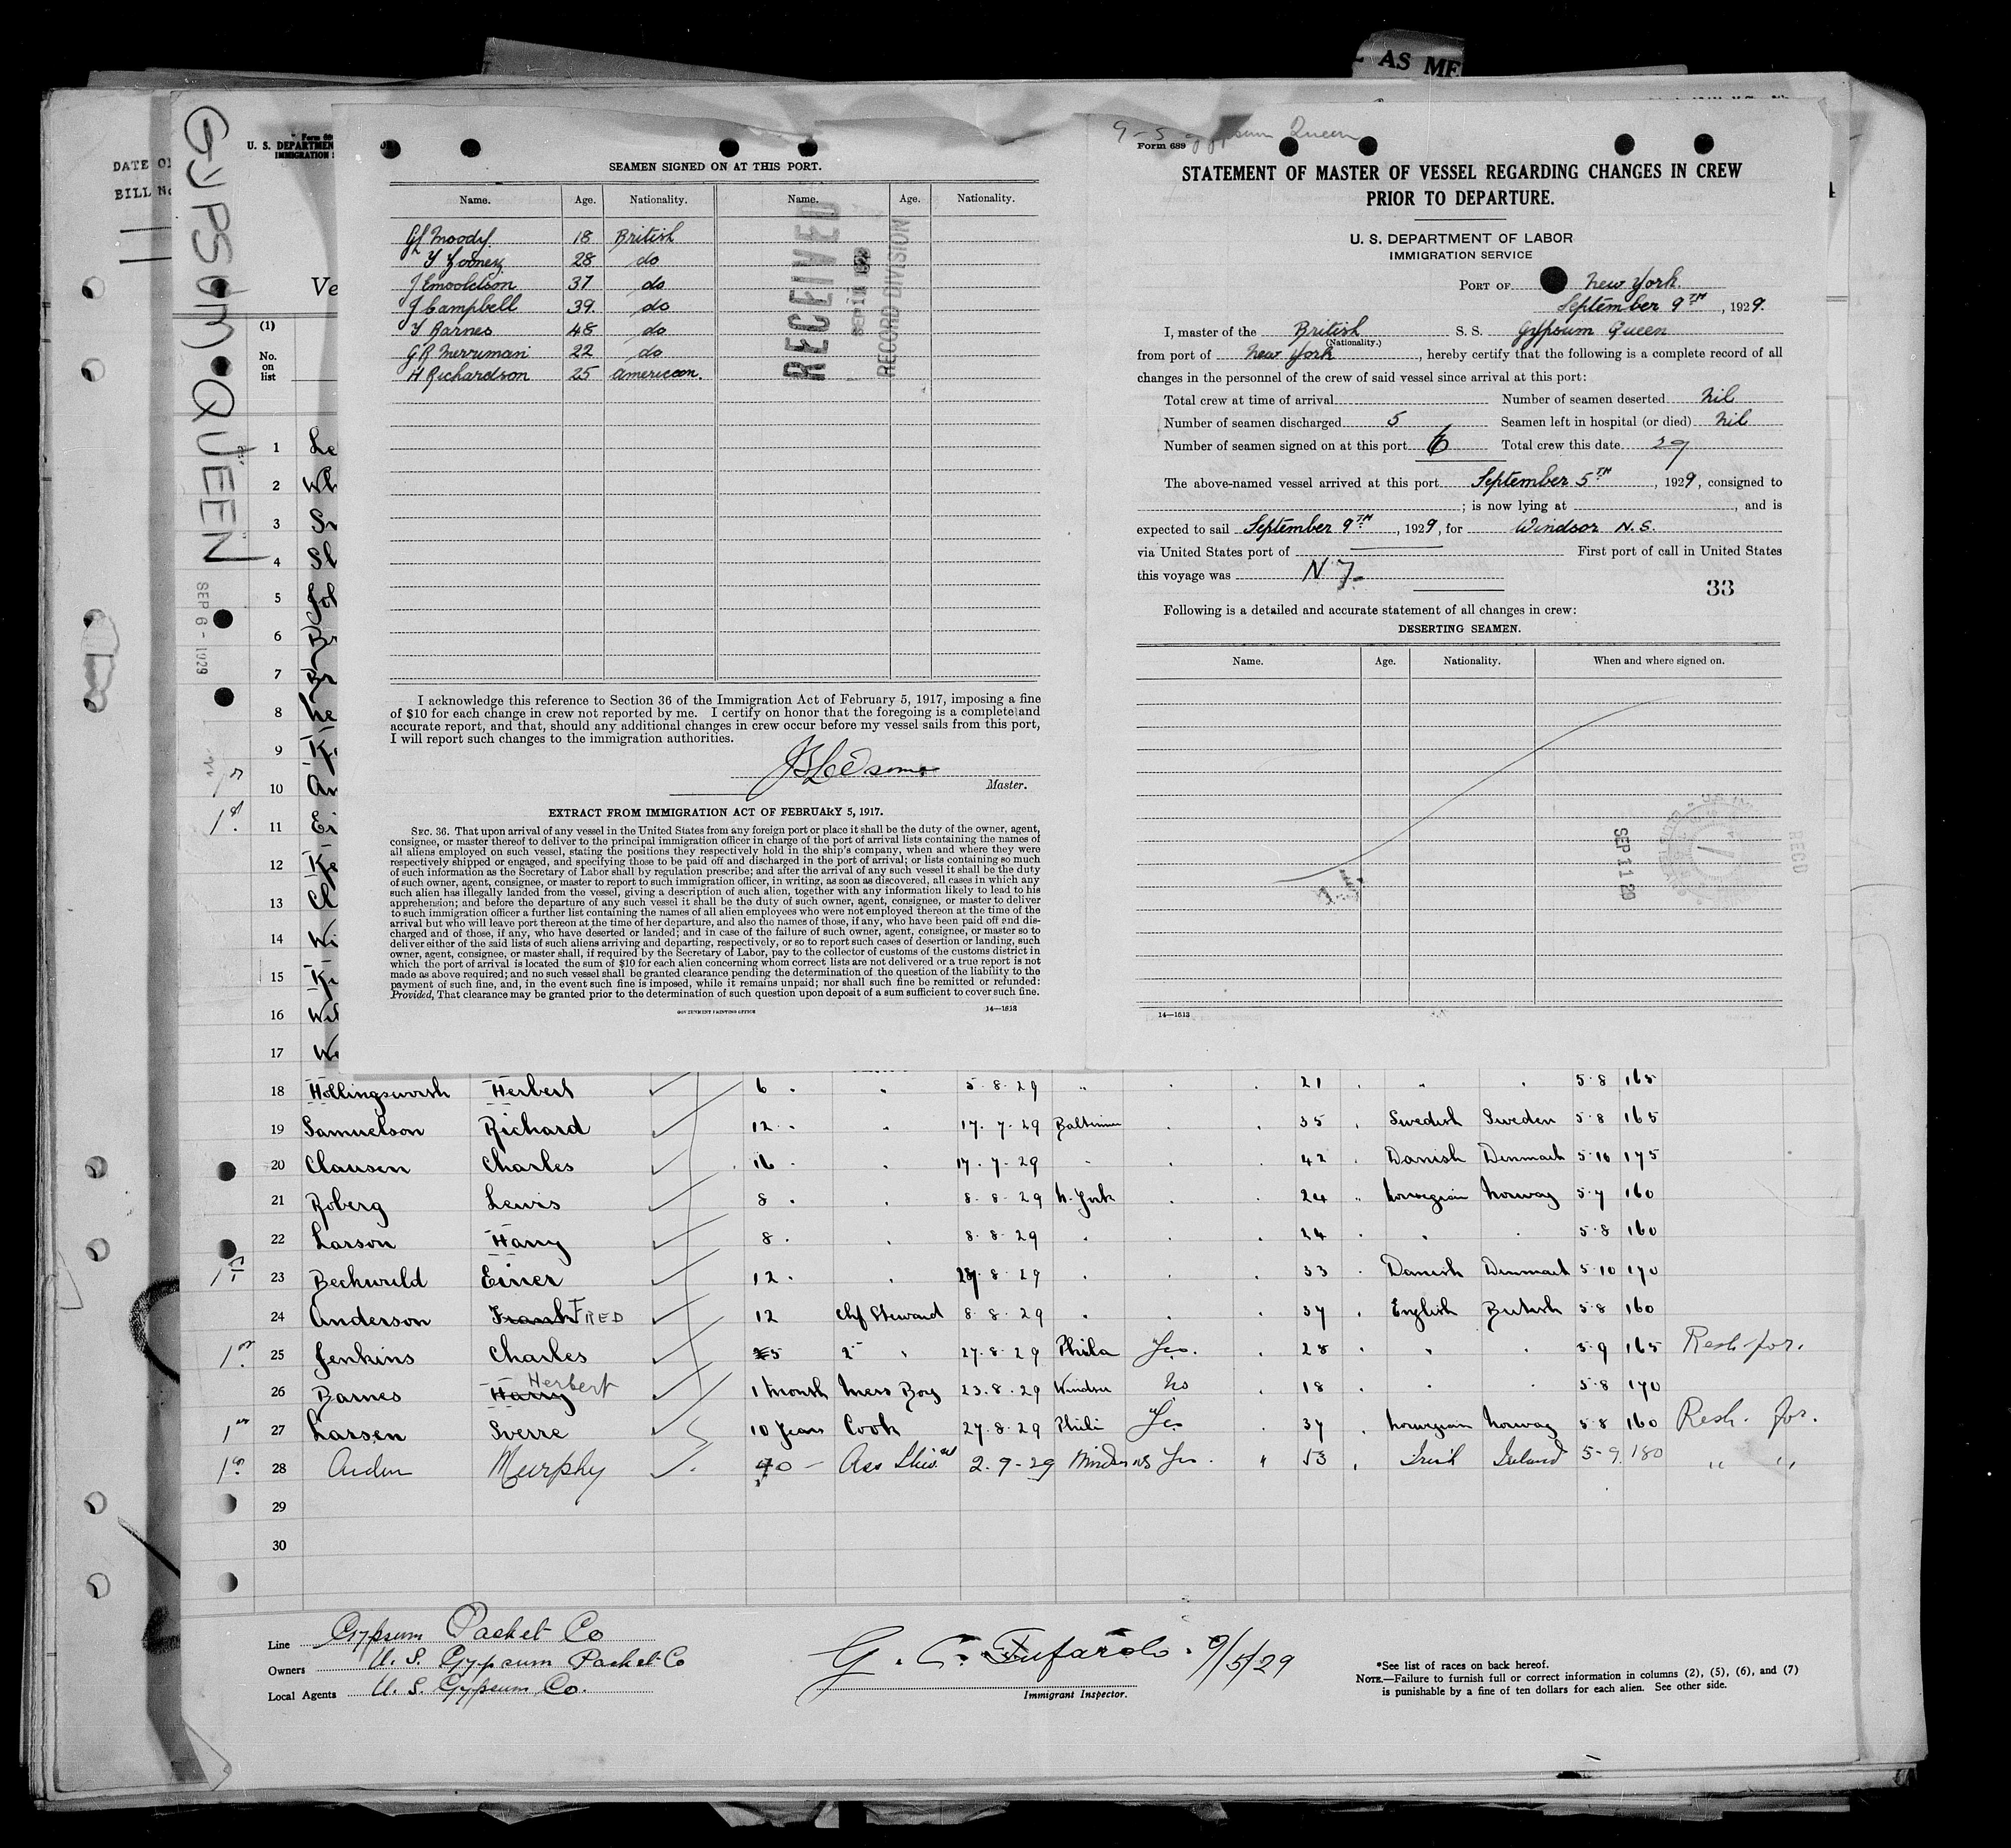 AS ME
DATE O
BILL No
GYPSUM QUEEN
SEP 6 - 1929
U. S. DEPARTMEN
IMMIGRATION
Ve
(1)
No.
on
list
1 Le
2 Wh
3 Sr
4 Sl
5 Joh
6 Br
7 Br
8 he
9 K
10 An
11 Ei
12 Ke
13 Cl
14 Wi
15 K
16 Wil
17 We
SEAMEN SIGNED ON AT THIS PORT.
Name. Age. Nationality. Name. Age. Nationality.
G L Moody 18 British
Y Zooney 28 do
J Emooletson 37 do
J Campbell 39 do
Y Barnes 48 do
G R Merriman 22 do
H Richardson 25 American.
RECEIVED
RECORD DIVISION
I acknowledge this reference to Section 36 of the Immigration Act of February 5, 1917, imposing a fine
of $10 for each change in crew not reported by me. I certify on honor that the foregoing is a complete and
accurate report, and that, should any additional changes in crew occur before my vessel sails from this port,
I will report such changes to the immigration authorities.
Master.
EXTRACT FROM IMMIGRATION ACT OF FEBRUARY 5, 1917.
SEC. 36. That upon arrival of any vessel in the United States from any foreign port or place it shall be the duty of the owner, agent,
consignee, or master thereof to deliver to the principal immigration officer in charge of the port of arrival lists containing the names of
all aliens employed on such vessel, stating the positions they respectively hold in the ship's company, when and where they were
respectively shipped or engaged, and specifying those to be paid off and discharged in the port of arrival; or lists containing so much
of such information as the Secretary of Labor shall by regulation prescribe; and after the arrival of any such vessel it shall be the duty
of such owner, agent, consignee, or master to report to such immigration officer, in writing, as soon as discovered, all cases in which any
such alien has illegally landed from the vessel, giving a description of such alien, together with any information likely to lead to his
apprehension; and before the departure of any such vessel it shall be the duty of such owner, agent, consignee, or master to deliver
to such immigration officer a further list containing the names of all alien employees who were not employed thereon at the time of the
arrival but who will leave port thereon at the time of her departure, and also the names of those, if any, who have been paid off and dis-
charged and of those, if any, who have deserted or landed; and in case of the failure of such owner, agent, consignee, or master so to
deliver either of the said lists of such aliens arriving and departing, respectively, or so to report such cases of desertion or landing, such
owner, agent, consignee, or master shall, if required by the Secretary of Labor, pay to the collector of customs of the customs district in
which the port of arrival is located the sum of $10 for each alien concerning whom correct lists are not delivered or a true report is not
made as above required; and no such vessel shall be granted clearance pending the determination of the question of the liability to the
payment of such fine, and, in the event such fine is imposed, while it remains unpaid; nor shall such fine be remitted or refunded:
Provided, That clearance may be granted prior to the determination of such question upon deposit of a sum sufficient to cover such fine.
GOVERNMENT PRINTING OFFICE 14—1513
9-5 Gypsum Queen
Form 689
STATEMENT OF MASTER OF VESSEL REGARDING CHANGES IN CREW
PRIOR TO DEPARTURE.
U. S. DEPARTMENT OF LABOR
IMMIGRATION SERVICE
PORT OF New York.
September 9TH, 1929.
I, master of the British S. S. Gypsum Queen
(Nationality.)
from port of New York, hereby certify that the following is a complete record of all
changes in the personnel of the crew of said vessel since arrival at this port:
Total crew at time of arrival Number of seamen deserted nil
Number of seamen discharged 5 Seamen left in hospital (or died) nil
Number of seamen signed on at this port 6 Total crew this date 29
The above-named vessel arrived at this port September 5TH, 1929, consigned to
; is now lying at , and is
expected to sail September 9TH, 1929, for Windsor N.S.
via United States port of First port of call in United States
this voyage was N.Y.
33
Following is a detailed and accurate statement of all changes in crew:
DESERTING SEAMEN.
Name. Age. Nationality. When and where signed on.
SEP 11 29
RECD
14—1513
18 Hollingsworth Herbert 6 " " 5.8.29 " 21 " " 5.8 165
19 Samuelson Richard 12 " " 17.7.29 Baltimore 35 Swedish Sweden 5.8 165
20 Clausen Charles 16 " " 17.7.29 " 42 Danish Denmark 5.10 175
21 Roberg Lewis 8 " " 8.8.29 N. York 24 Norwegian Norway 5.7 160
22 Larson Harry 8 " " 8.8.29 " 24 " " 5.8 160
1st 23 Bechwild Einer 12 " " 29.8.29 " 33 Danish Denmark 5.10 170
24 Anderson Frank FRED 12 Chf Steward 8.8.29 " 37 English British 5.8 160
1st 25 Jenkins Charles 5 2" " 27.8.29 Phila Yes. 28 " " 5.9 165 Resh. for.
26 Barnes Harry Herbert 1 month Mess Boy 23.8.29 Windsor No 18 " " 5.8 170
1st 27 Larsen Sverre 10 Years Cook 27.8.29 Phili Yes 37 Norwegian Norway 5.8 160 Resh. for.
1st 28 Aiden Murphy 40 2.9-29 Windsor NS Yes. 53 Irish Ireland 5-9 180 " "
29
30
Line Gypsum Packet Co
Owners U. S. Gypsum Packet Co
Local Agents U. S. Gypsum Co.
G. C. Fufarolo. 9/5/29
Immigrant Inspector.
*See list of races on back hereof.
NOTE.—Failure to furnish full or correct information in columns (2), (5), (6), and (7)
is punishable by a fine of ten dollars for each alien. See other side.